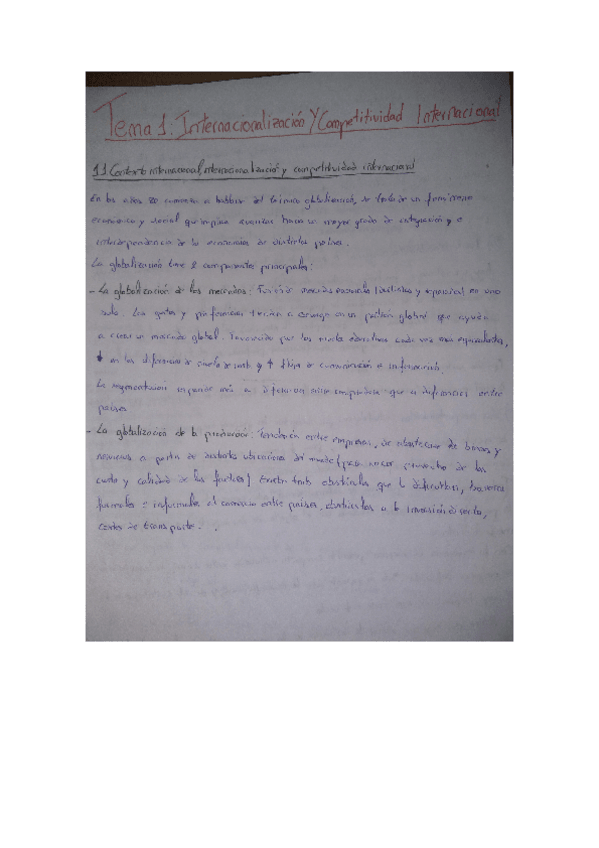 Tema 1: Internacionalización y Competitividad Internacional
1.1 Contexto internacional, internacionalización y competitividad internacional
En los años 80 comienza a hablarse del término globalización, se trata de un fenómeno
económico y social que implica avanzar hacia un mayor grado de integración y e
interdependencia de la economías de distintos países.
La globalización tiene 2 componentes principales:
- La globalización de los mercados: Fusión de mercados nacionales distintos y separados en uno
solo. Los gustos y preferencias tienden a converger en un patrón global que ayudan
a crear un mercado global. Favorecido por los niveles educativos cada vez más equivalentes,
↓ en las diferencias de nivel de renta y ↑ flujo de comunicación e información.
La segmentación responde más a diferencias que a diferencias entre
países
- La globalización de la producción: Tendencia entre empresas, de abastecerse de bienes y
servicios a partir de distintas ubicaciones del mundo (para sacar provecho de los
coste y calidad de los factores) existen tantos obstáculos que lo dificultan, barreras
formales e informales al comercio entre países, obstáculos a la inversión directa,
costes de transporte.